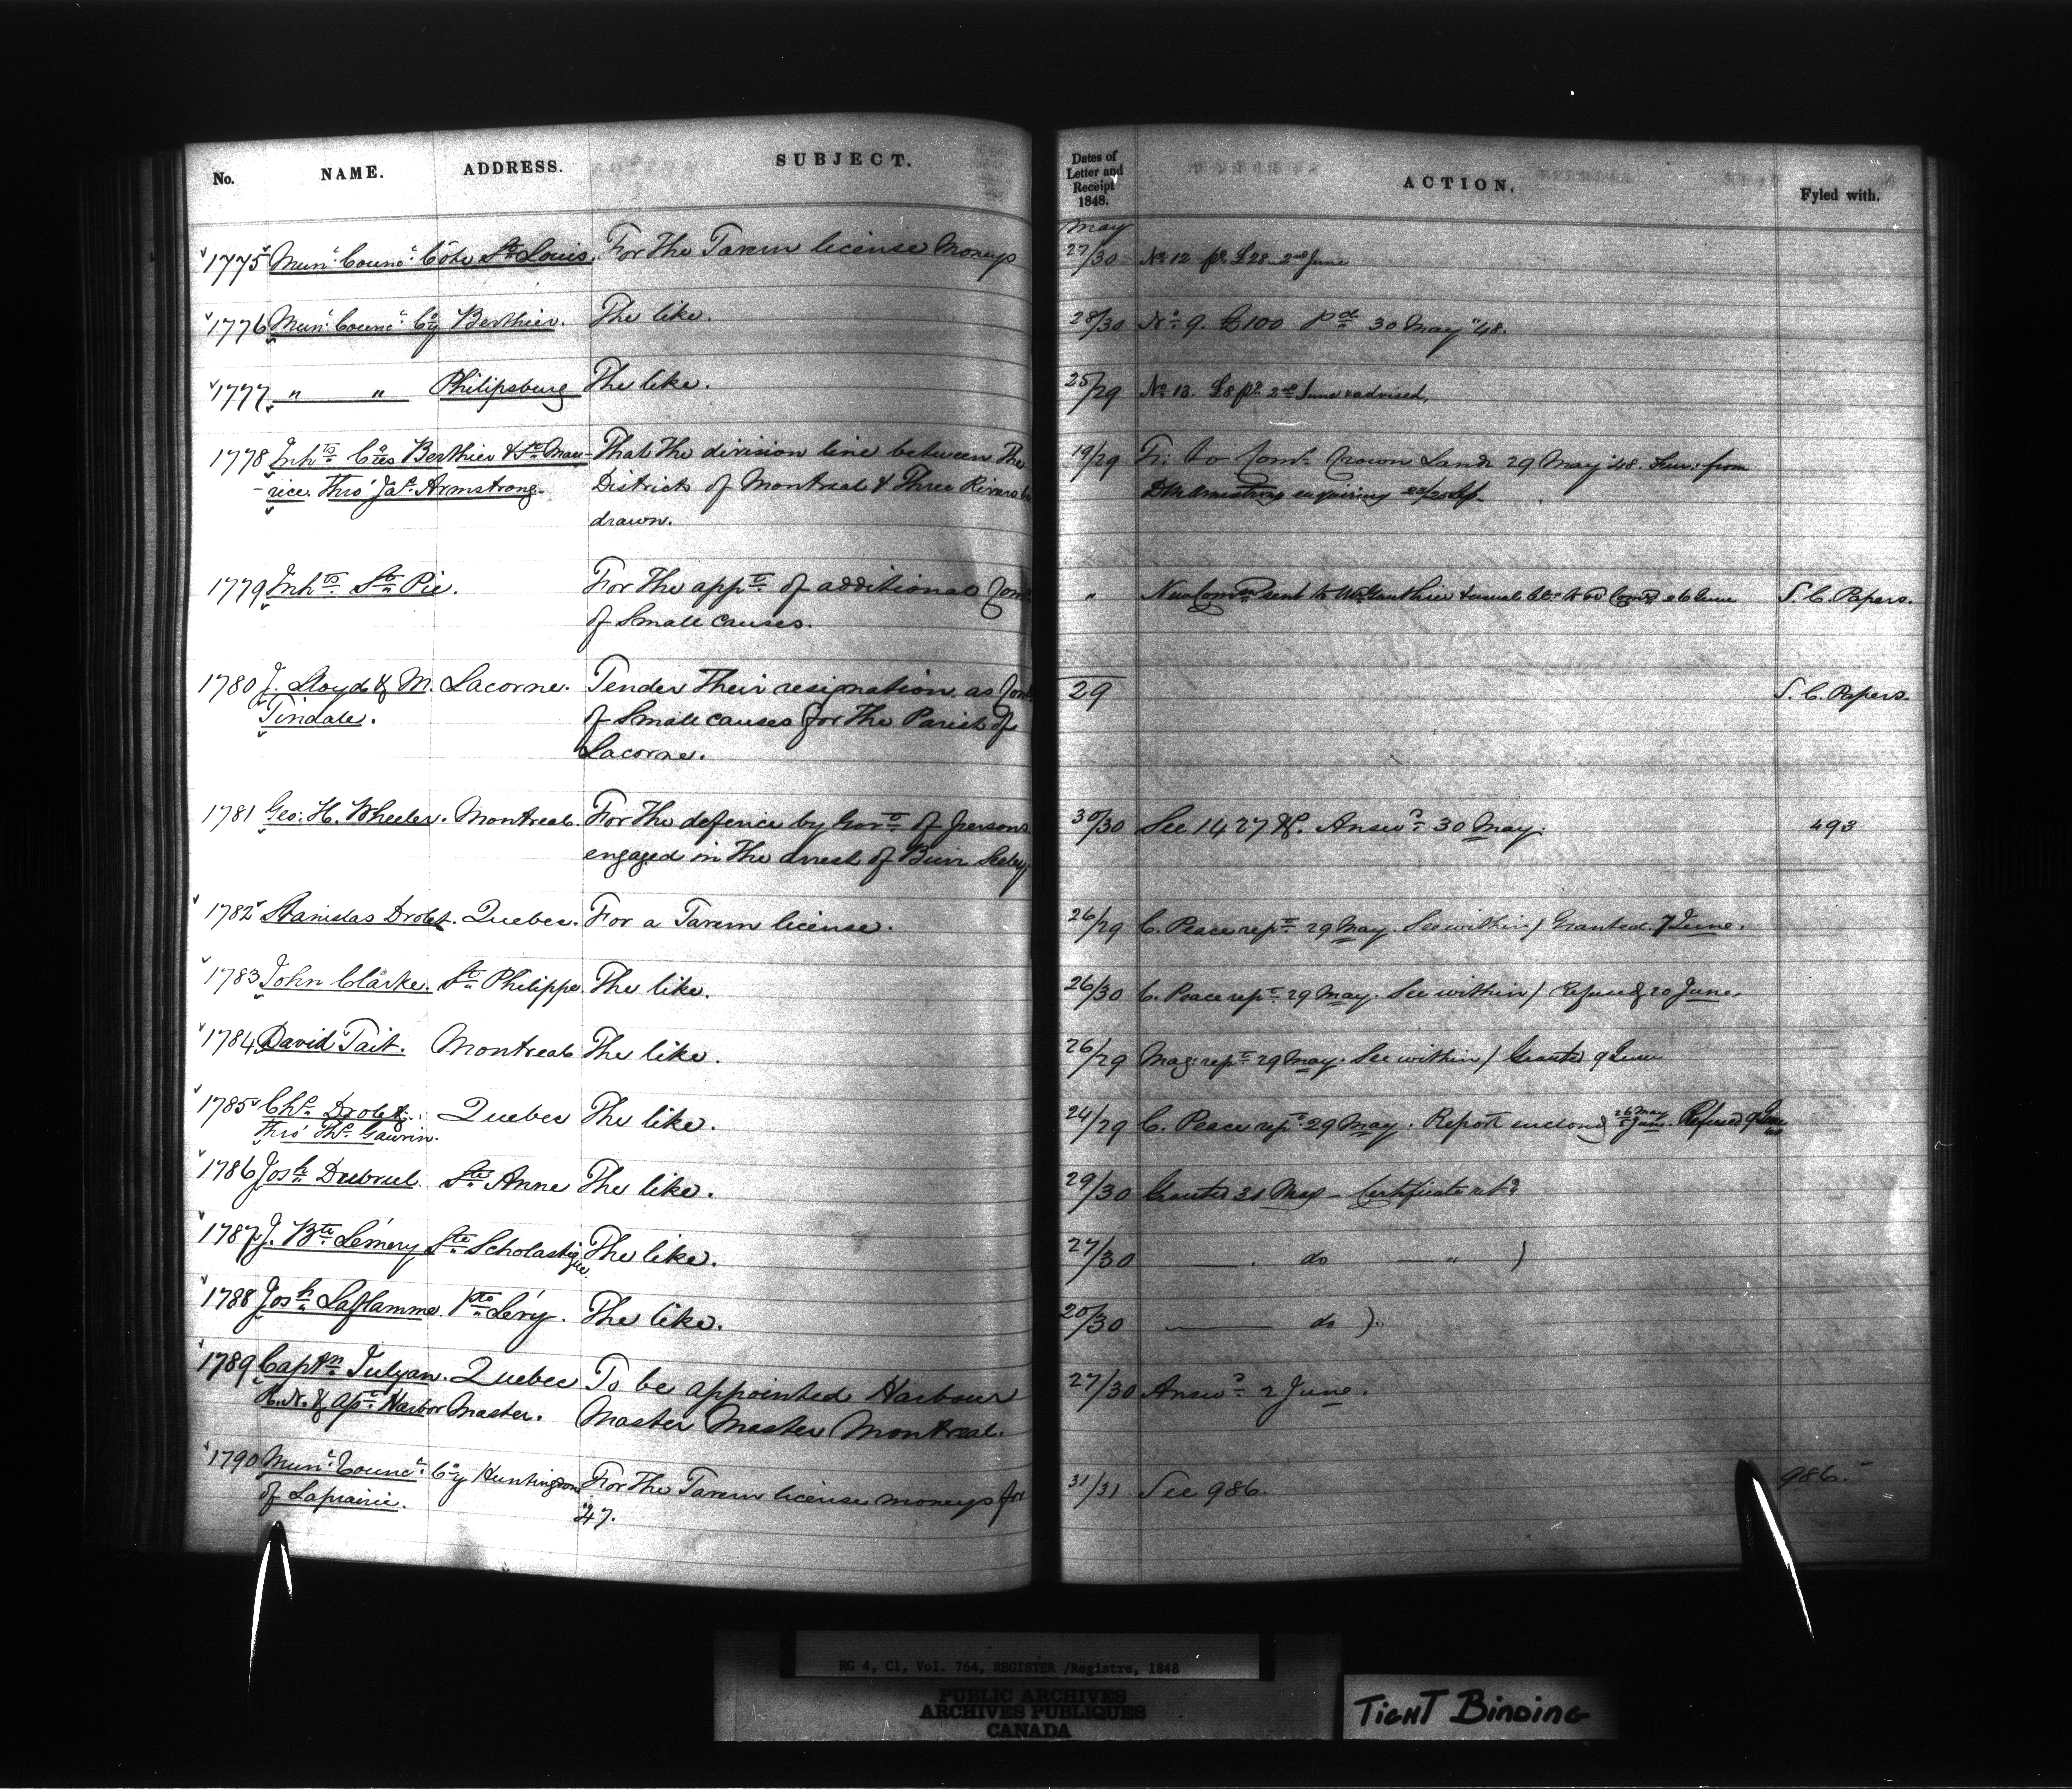 No. NAME. ADDRESS. SUBJECT.
Dates of Letter and Receipt 1848. ACTION. Fyled with.
May
1775 Mun: Counc: Côte St. Louis. For the Tavern license Moneys 27/30 No. 12 pd. £28 2nd June
1776 Mun: Counc: Cy Berthier. The like. 28/30 No. 9. £100 Pd 30 May "48.
1777 " " Philipsburg The like. 25/29 No. 13. £8 pd. 2nd June & advised.
1778 Inhts Cies Berthier & St. Mau- That the division line between the 19/29 Fr: to Comr. Crown Lands 29 May '48. from
-rice. Thro' Jas. Armstrong. Districts of Montreal & Three Rivers be Armstrong enquiring
drawn.
1779 Inhts St. Pie. For the appt. of additional Comrs " New Comn. sent to & usual to 6 June S. C. Papers.
of Small causes.
1780 J. Lloyd & M. Lacorne. Tender their resignation as Comrs 29 S. C. Papers.
Tindale. of Small causes for the Parish of
Lacorne.
1781 Geo: H. Wheeler. Montreal. For the defence by Govt. of persons 30/30 See 1427 &c. Answd. 30 May. 493
engaged in the arrest of Seeley
1782 Stanislas Drolet. Quebec. For a Tavern license. 26/29 C. Peace rept. 29 May. See within / Granted 7 June.
1783 John Clarke. St. Philippe. The like. 26/30 C. Peace rept. 29 May. See within / Refused 20 June.
1784 David Tait. Montreal The like. 26/29 Mag: rept. 29 May. See within / Granted 9 June
1785 Chs. Drolet. Quebec The like. 24/29 C. Peace rept. 29 May. Report enclosd 26 May Refused 9 June
Thro' Ths. Gauvin.
1786 Josh. Dubrul. Ste Anne The like. 29/30 Granted 31 May - Certificate retd.
1787 J. Bte Lémery Ste Scholastique. The like. 27/30 do "
1788 Josh. Laflamme. Pte Lévy. The like. 20/30 do
1789 Captn. Tulyan. Quebec To be appointed Harbour 27/30 Answd. 2 June.
R.N. & Harbor Master. Master Master Montreal.
1790 Mun: Counc: Cy Huntingdon For the Tavern license moneys for 31/31 See 986. 986.
of Laprairie. '47.
RG 4, C1, Vol. 764, REGISTER /Registre, 1848
PUBLIC ARCHIVES
ARCHIVES PUBLIQUES
CANADA
TIGHT BINDING